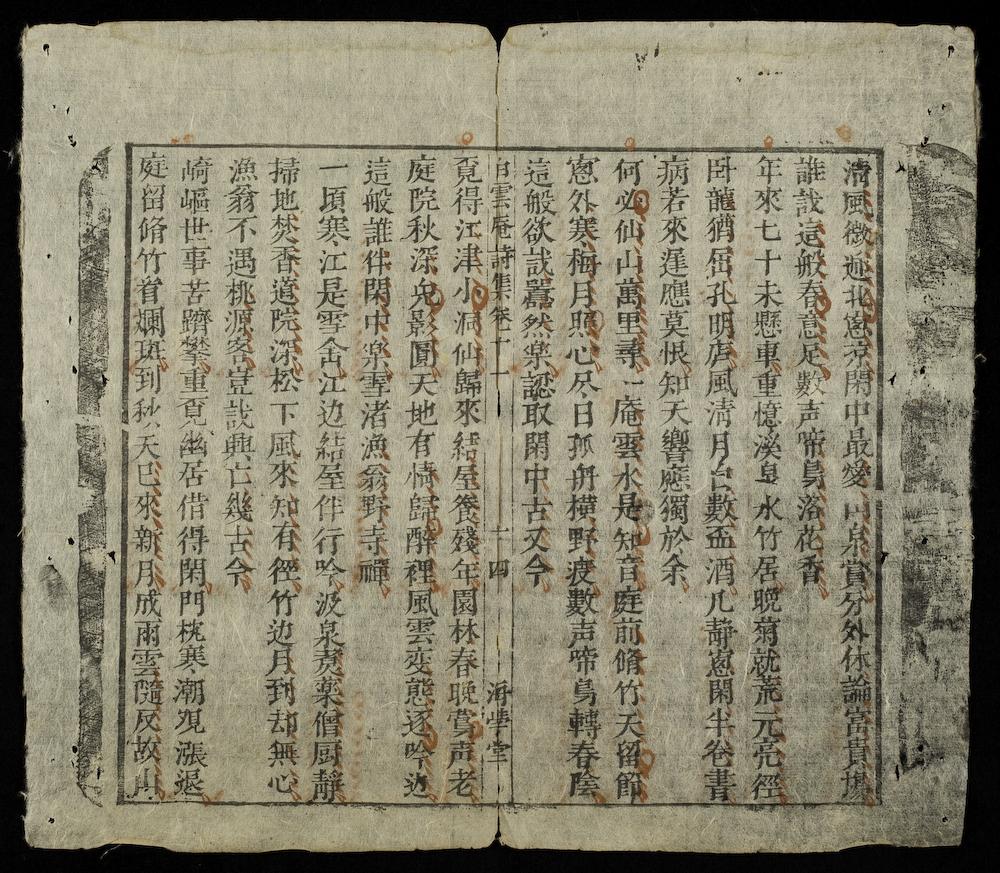 清風微逝北窓凉閑中最愛山泉賞分外休論富貴場
誰哉這般春意足数声啼鳥落花香
年來七十未懸車重憶溪泉水竹居晩菊就荒元亮徑
卧龍猶屈孔明庐風淸月白數盃酒几靜窓閑半卷書
病若來遅應莫恨知天響應獨於余
何必仙山萬里尋一庵雲水是知音庭前脩竹天留節
窓外寒梅月照心尽日孤舟横野渡數声啼鳥轉春陰
這般欲哉囂然楽認取閑中古又今
白雲庵詩集卷十一 十四 海學堂
覓得江津小洞仙歸來結屋養殘年園林春晩賞声老
庭院秋深兔影圓天地有情歸醉裡風雲変態逐吟边
這般誰伴閑中楽雪渚漁翁野寺禪
一頃寒江是雪舍江边結屋伴行吟汲泉煑藥僧厨靜
掃地焚香道院深松下風來知有徑竹边月到却無心
漁翁不遇桃源客豈哉興亡幾古今
崎嶇世事苦躋攀重覓幽居借得閑門枕寒潮观漲退
庭留脩竹首斕斑到秋天已來新月成雨雲隨反故山